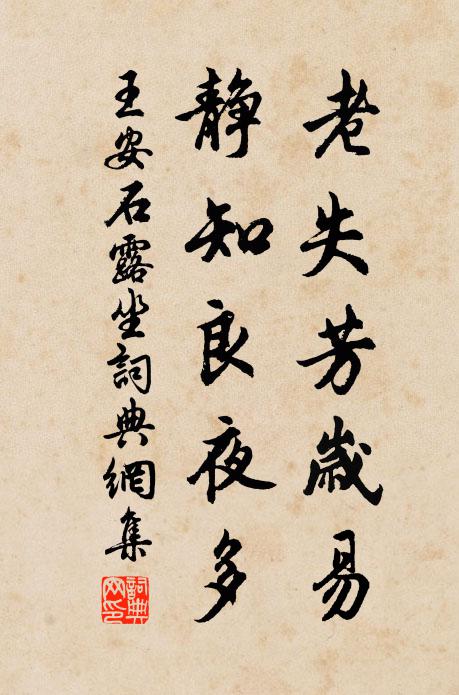 老失芳歲易
靜知良夜多
王安石露坐詞典網集
詞典網印